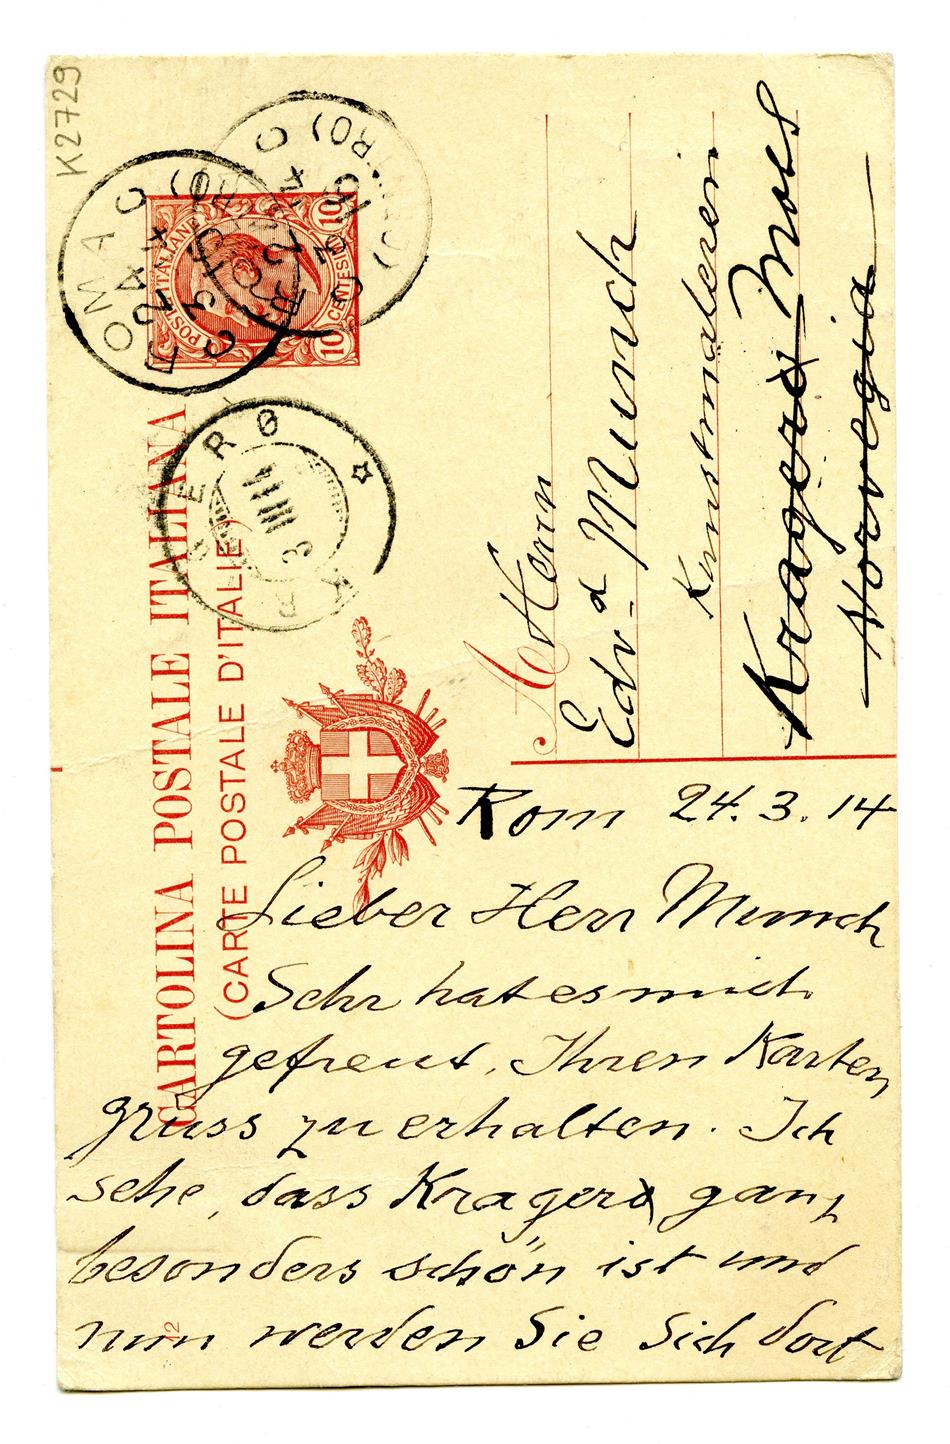 K2729
ROMA CENTRO
24 3 14
POSTE ITALIANE
CENTESIMI 10
10
KRAGERØ
3 III 14
CARTOLINA POSTALE ITALIANA
(CARTE POSTALE D'ITALIE)
A Herrn
Edvd Munch
Kunstmaleren
Kragerø Moss
Norvegia
Rom 24.3.14
Lieber Herr Munch
Sehr hat es mich
gefreut, Ihren Karten
gruss zu erhalten. Ich
sehe, dass Kragerø ganz
besonders schön ist und
nun werden Sie Sich dort
12